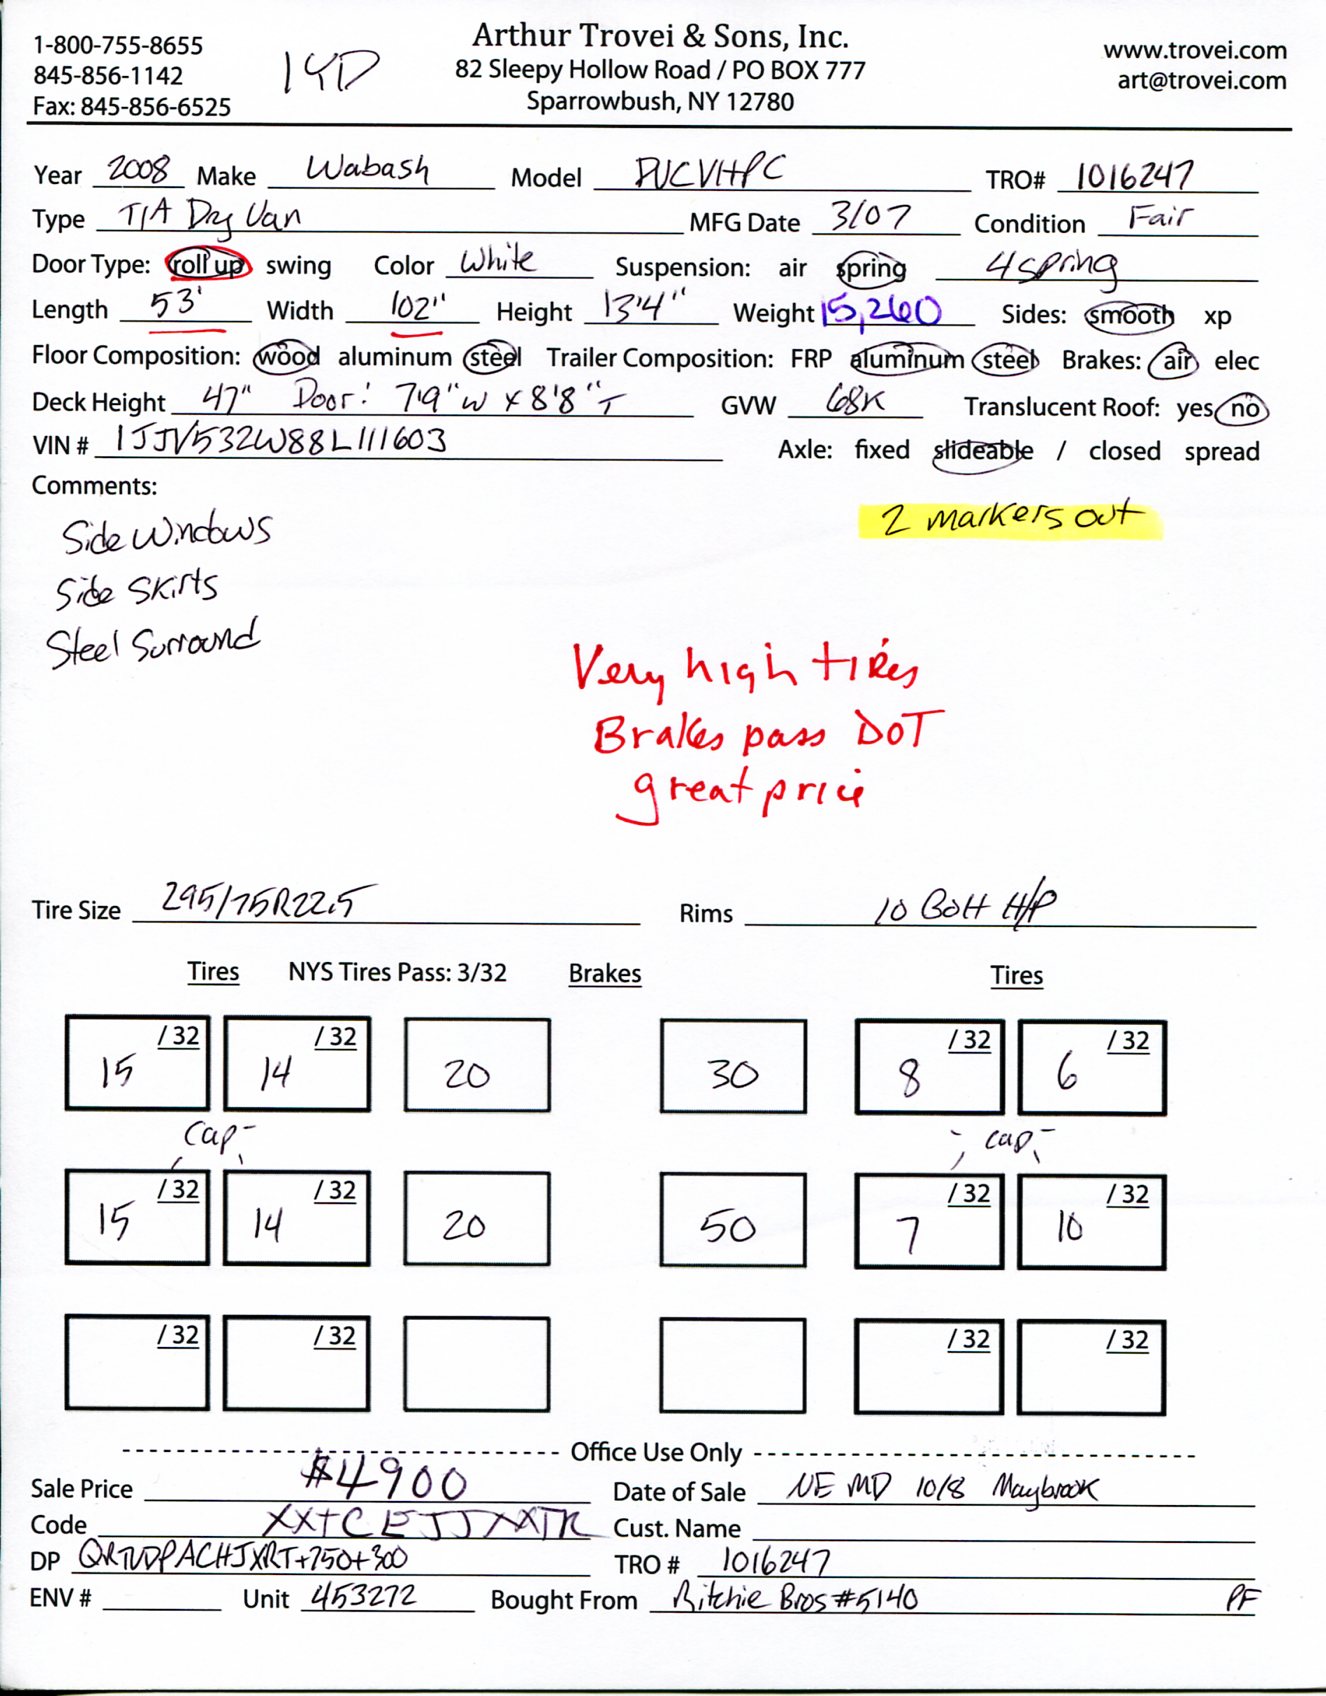 1-800-755-8655
845-856-1142
Fax: 845-856-6525
1YD
Arthur Trovei & Sons, Inc.
82 Sleepy Hollow Road / PO BOX 777
Sparrowbush, NY 12780
www.trovei.com
art@trovei.com
Year 2008 Make Wabash Model DVCVHPC TRO# 1016247
Type T/A Dry Van MFG Date 3/07 Condition Fair
Door Type: roll up swing Color White Suspension: air spring 4 spring
Length 53' Width 102" Height 13'4" Weight 15,260 Sides: smooth xp
Floor Composition: wood aluminum steel Trailer Composition: FRP aluminum steel Brakes: air elec
Deck Height 47" Door: 7'9"W x 8'8"T GVW 68K Translucent Roof: yes no
VIN # 1JJV532W88L111603 Axle: fixed slideable / closed spread
Comments:
2 markers out
Side Windows
Side Skirts
Steel Surround
Very high tires
Brakes pass DOT
great price
Tire Size 295/75R22.5 Rims 10 Bolt H/P
Tires NYS Tires Pass: 3/32 Brakes Tires
15 /32 14 /32 20 30 8 /32 6 /32
Cap cap
15 /32 14 /32 20 50 7 /32 10 /32
/32 /32 /32 /32
Office Use Only
Sale Price $4900 Date of Sale NE MD 10/8 Maybrook
Code Cust. Name
DP TRO # 1016247
ENV # Unit 453272 Bought From Ritchie Bros #5140 PF